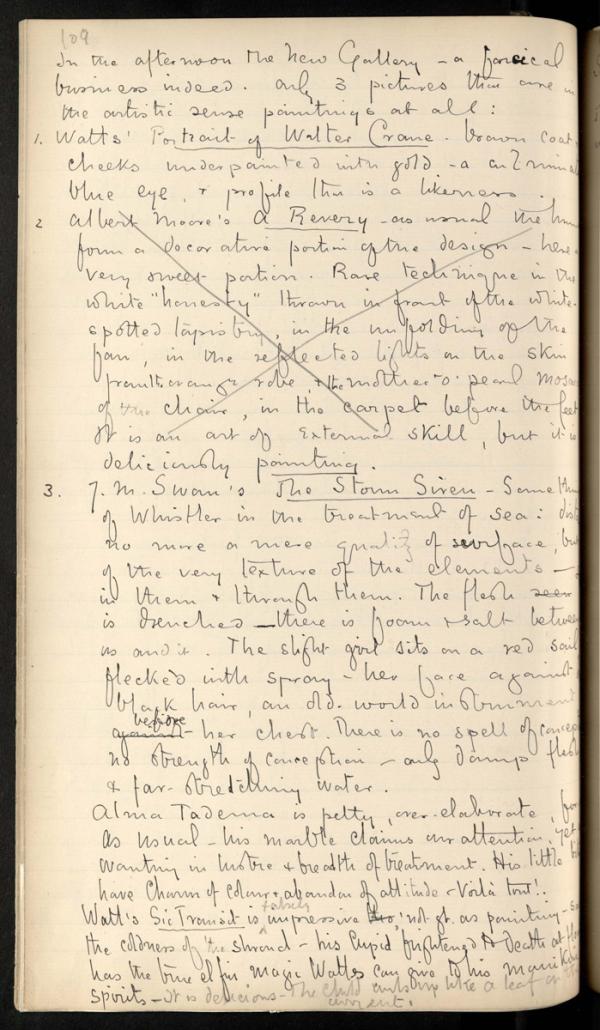 109
In the afternoon the New Gallery – a farcical
business indeed. Only 3 pictures that are in
the artistic sense paintings at all :
1. Watts' Portrait of Walter Crane – brown coat,
cheeks underpainted with gold – a
blue eye, & profile that is a likeness.
2 Albert Moore's A Revery – as usual the
form a decorative portion of the design – here a
very sweet portion. Rare technique in the
white "honesty" thrown in front of the white-
spotted tapistry, in the unfolding of the
fan, in the reflected lights on the skin
from the orange robe, & the mother o' pearl
of the chair, in the carpet before the feet
It is an art of external skill, but it is
deliciously painting.
3. J. M. Swan's The Storm Siren – Something
of Whistler in the treatment of sea :
no mere a mere quality of surface, but
of the very texture of the elements –
in them & through them. The flesh seen
is drenched – there is foam & salt between
us and it. The slight girl sits on a red sail
flecked with spray – her face against
black hair, an old-world instrument
before
against her chest. There is no spell of
no strength of conception – only damp flesh
& far-stretching water.
Alma Tadema is petty, over-elaborate,
as usual – his marble claims our attention, yet
wanting in lustre & breadth of treatment. His little
have charm of colour & abandon of attitude – Voilà tout!.
Watt's Sic Transit is impressive not gt. as painting –
the coldness of the shroud – his Cupid frightened to death at
has the true elfin magic Watts can give to his
spirits – It is delicious – The child curls up like a leaf in
current.